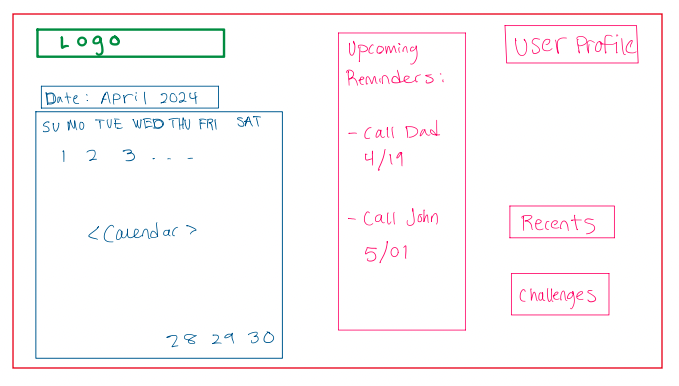 Logo
Date: April 2024
SU MO TUE WED THU FRI SAT
1 2 3 . . .
<Calendar>
28 29 30
Upcoming
Reminders:
- Call Dad
4/19
- Call John
5/01
User Profile
Recents
Challenges